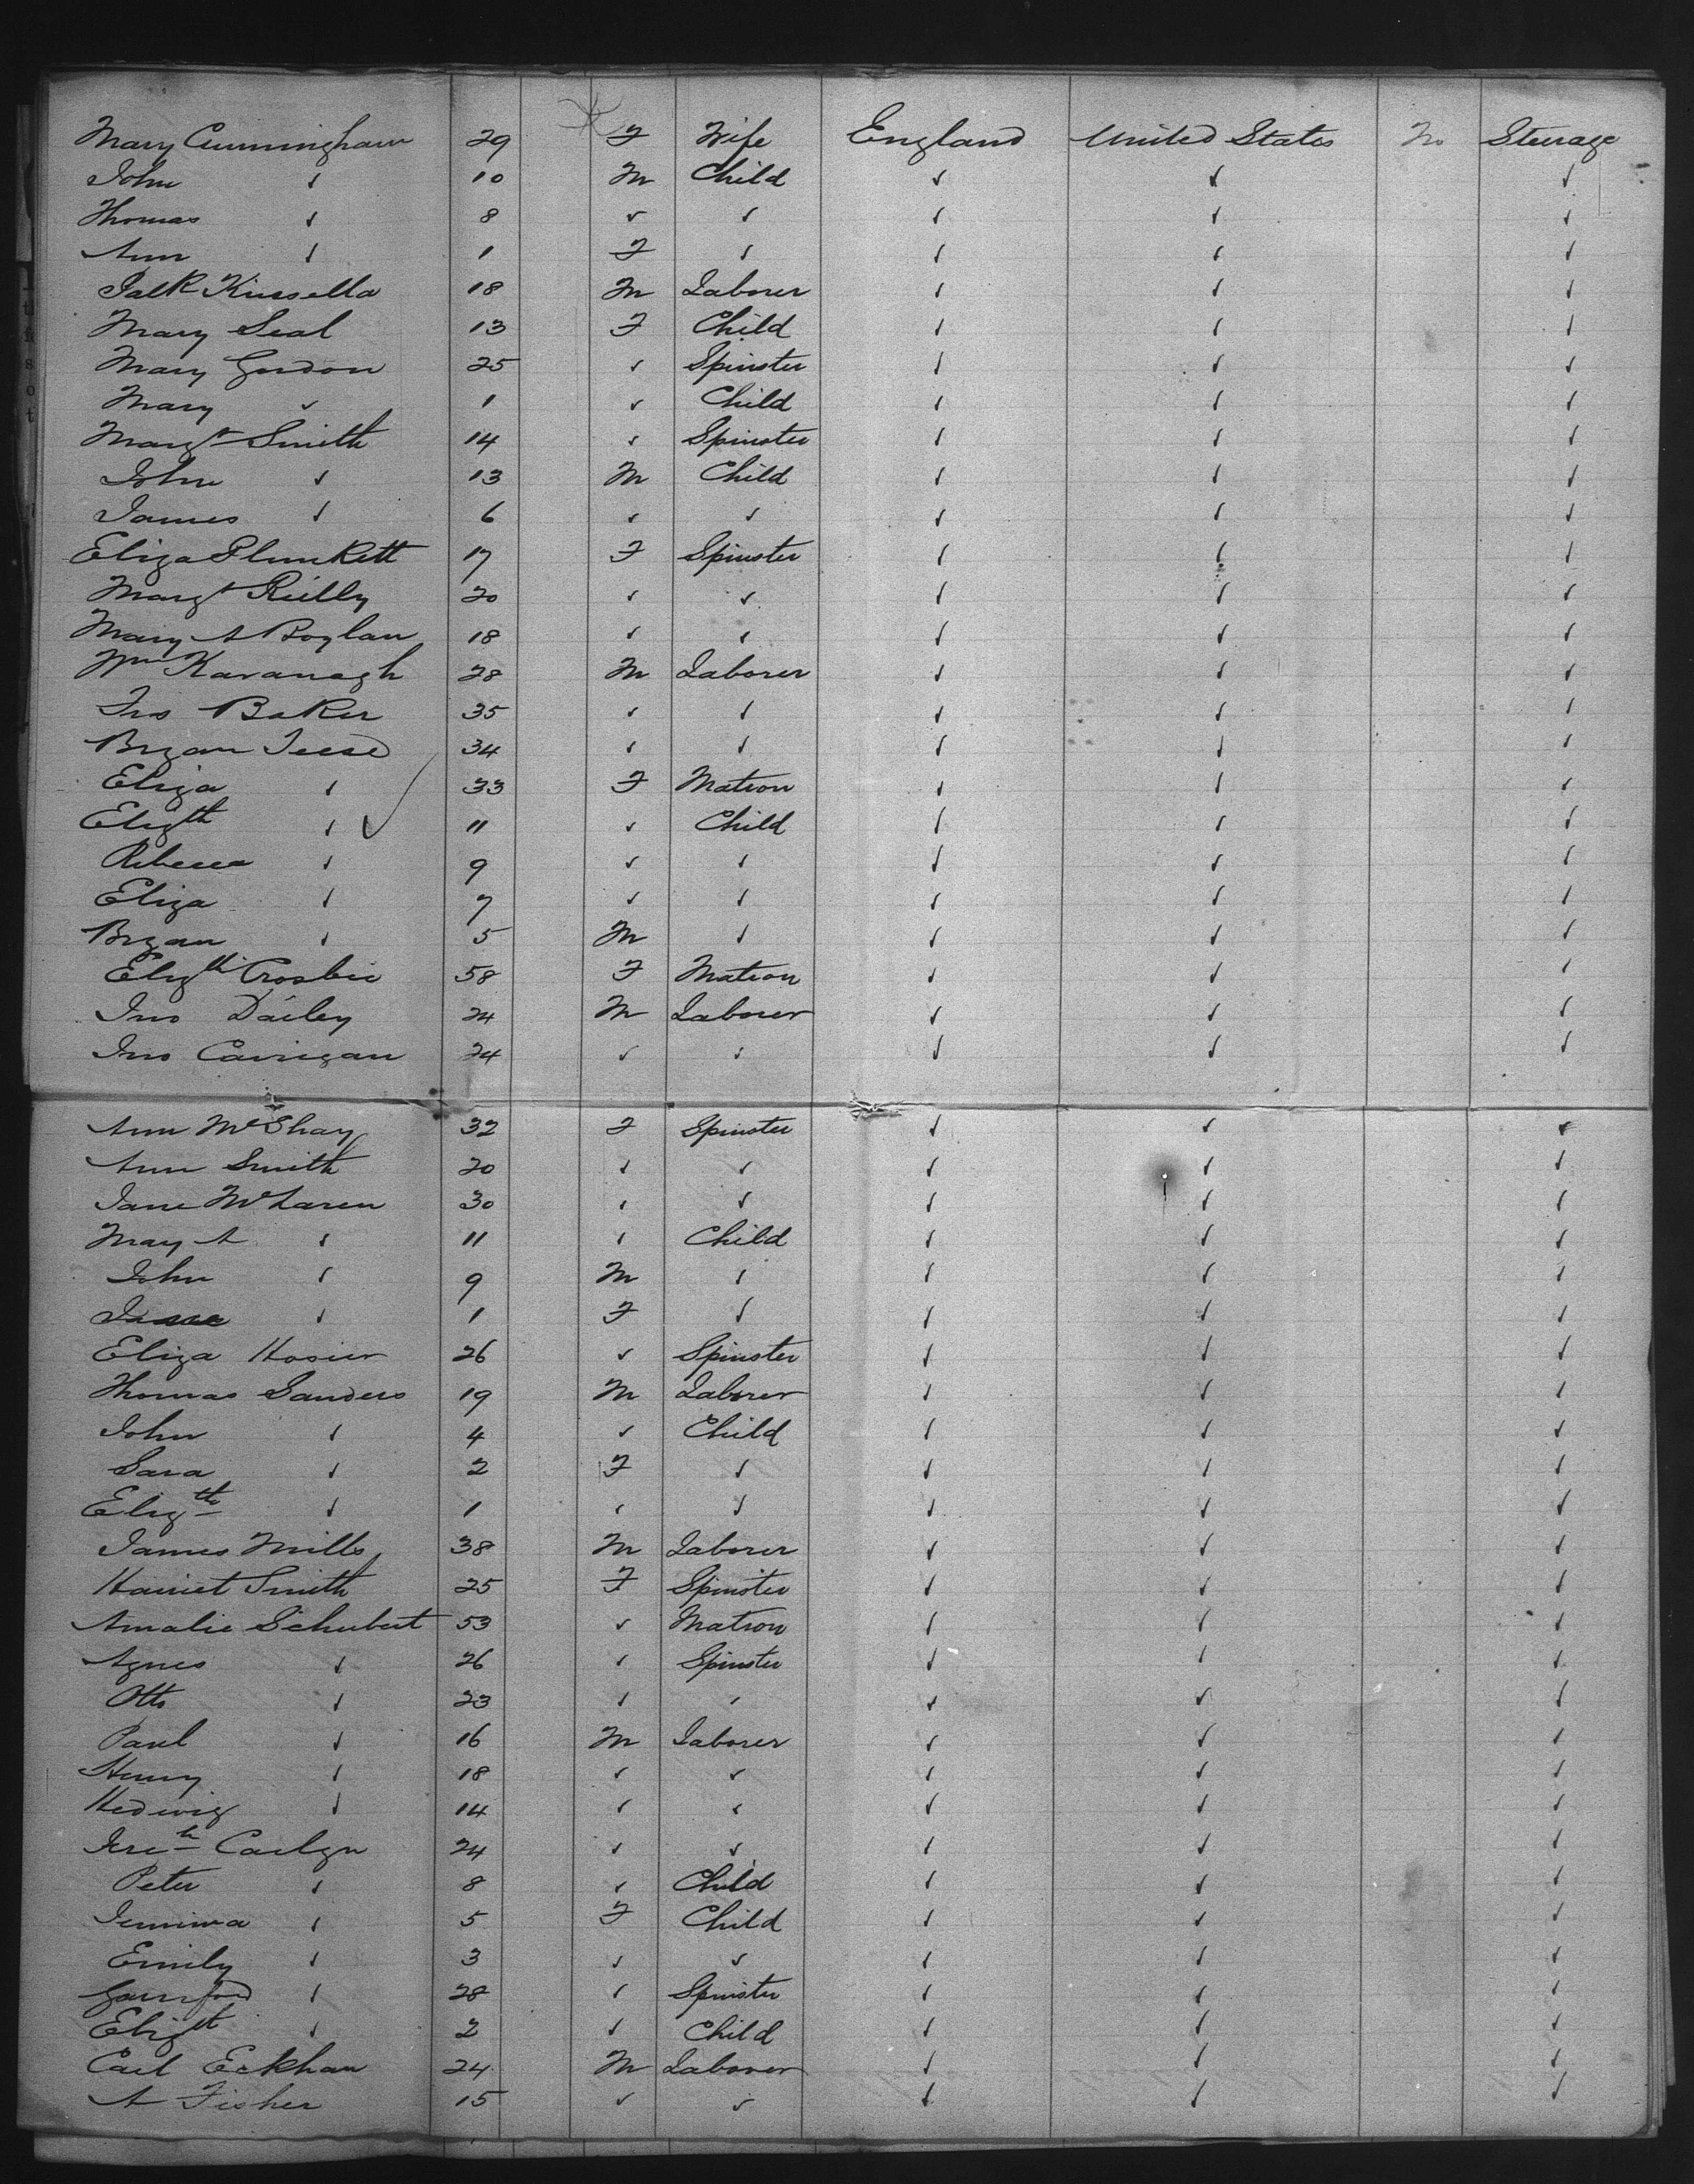 Mary Cunningham 29 F Wife England United States No Steerage
John ✓ 10 M Child ✓ ✓ ✓
Thomas ✓ 8 ✓ ✓ ✓ ✓ ✓
Ann ✓ 1 F ✓ ✓ ✓ ✓
Patk Kinsella 18 M Laborer ✓ ✓ ✓
Mary Seal 13 F Child ✓ ✓ ✓
Mary Gordon 25 ✓ Spinster ✓ ✓ ✓
Mary ✓ 1 ✓ Child ✓ ✓ ✓
Margt Smith 14 ✓ Spinster ✓ ✓ ✓
John ✓ 13 M Child ✓ ✓ ✓
James ✓ 6 ✓ ✓ ✓ ✓ ✓
Eliza Plunkett 17 F Spinster ✓ ✓ ✓
Margt Reilly 20 ✓ ✓ ✓ ✓ ✓
Mary A Boylan 18 ✓ ✓ ✓ ✓ ✓
Wm Kavanagh 28 M Laborer ✓ ✓ ✓
Jno Baker 35 ✓ ✓ ✓ ✓ ✓
Bryan 34 ✓ ✓ ✓ ✓ ✓
Eliza ✓ 33 F Matron ✓ ✓ ✓
Elizth ✓ 11 ✓ Child ✓ ✓ ✓
Rebecca ✓ 9 ✓ ✓ ✓ ✓ ✓
Eliza ✓ 7 ✓ ✓ ✓ ✓ ✓
Bryan ✓ 5 M ✓ ✓ ✓ ✓
Elizth Crosbie 58 F Matron ✓ ✓ ✓
Jno Dailey 24 M Laborer ✓ ✓ ✓
Jno Carrigan 24 ✓ ✓ ✓ ✓ ✓
Ann McShay 32 F Spinster ✓ ✓ ✓
Ann Smith 20 ✓ ✓ ✓ ✓ ✓
Jane McLaren 30 ✓ ✓ ✓ ✓ ✓
Mary A ✓ 11 ✓ Child ✓ ✓ ✓
John ✓ 9 M ✓ ✓ ✓ ✓
✓ 1 F ✓ ✓ ✓ ✓
Eliza Hosier 26 ✓ Spinster ✓ ✓ ✓
Thomas Sanders 19 M Laborer ✓ ✓ ✓
John ✓ 4 ✓ Child ✓ ✓ ✓
Sara ✓ 2 F ✓ ✓ ✓ ✓
Elizth ✓ 1 ✓ ✓ ✓ ✓ ✓
James Mills 38 M Laborer ✓ ✓ ✓
Harriet Smith 25 F Spinster ✓ ✓ ✓
Amalie Schubert 53 ✓ Matron ✓ ✓ ✓
Agnes ✓ 26 ✓ Spinster ✓ ✓ ✓
Otto ✓ 23 ✓ ✓ ✓ ✓ ✓
Paul ✓ 16 M Laborer ✓ ✓ ✓
Henry ✓ 18 ✓ ✓ ✓ ✓ ✓
Hedwig ✓ 14 ✓ ✓ ✓ ✓ ✓
Jereh 24 ✓ ✓ ✓ ✓ ✓
Peter ✓ 8 ✓ Child ✓ ✓ ✓
Jemima ✓ 5 F Child ✓ ✓ ✓
Emily ✓ 3 ✓ ✓ ✓ ✓ ✓
✓ 28 ✓ Spinster ✓ ✓ ✓
Elizth ✓ 2 ✓ Child ✓ ✓ ✓
Carl Eckhan 24 M Laborer ✓ ✓ ✓
A Fisher 15 ✓ ✓ ✓ ✓ ✓